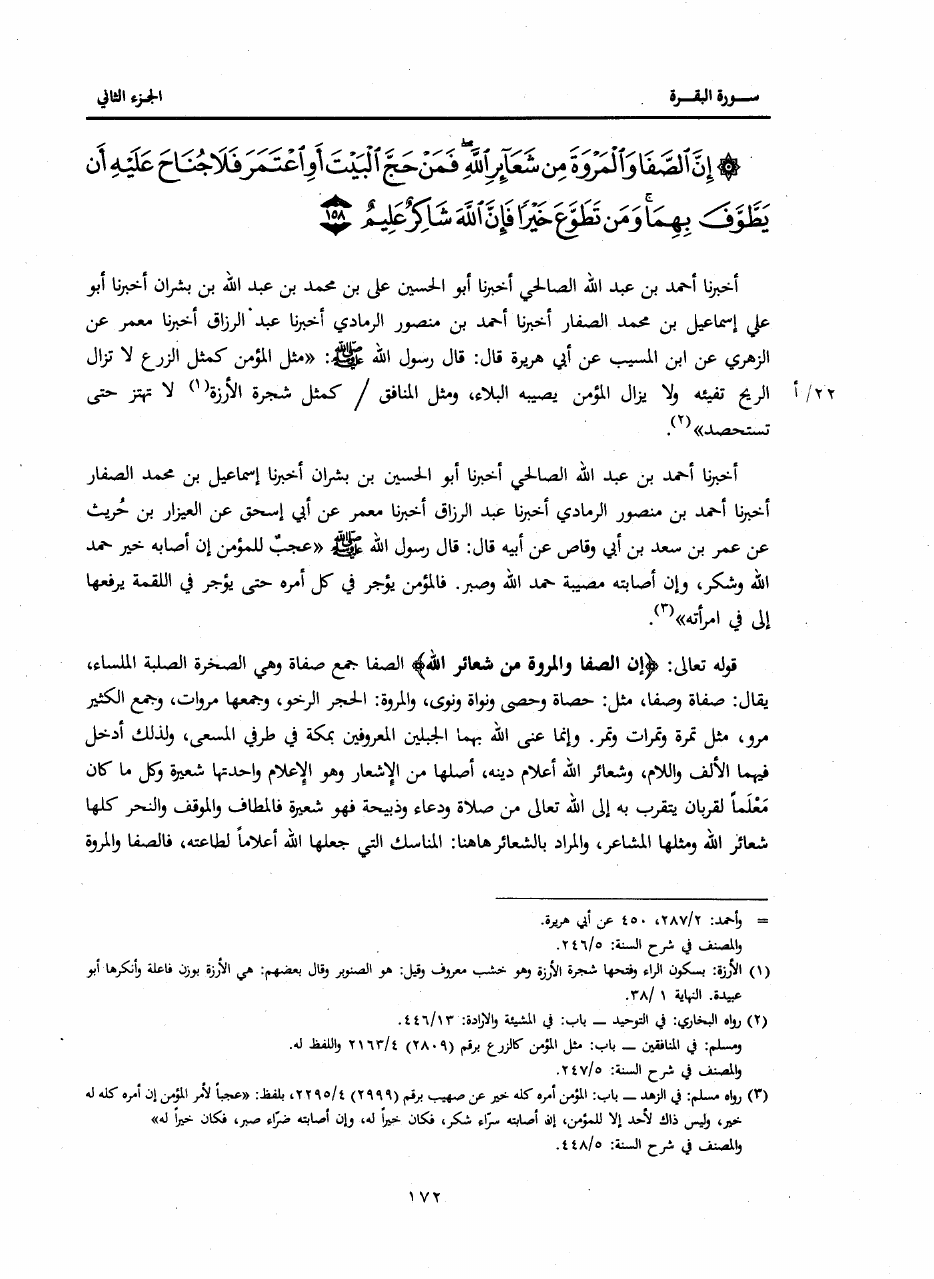 سورة البقرة الجزء الثاني
۞ إِنَّ ٱلصَّفَا وَٱلْمَرْوَةَ مِن شَعَآئِرِ ٱللَّهِۖ فَمَنْ حَجَّ ٱلْبَيْتَ أَوِ ٱعْتَمَرَ فَلَا جُنَاحَ عَلَيْهِ أَن
يَطَّوَّفَ بِهِمَاۚ وَمَن تَطَوَّعَ خَيْرًا فَإِنَّ ٱللَّهَ شَاكِرٌ عَلِيمٌ ١٥٨
أخبرنا أحمد بن عبد الله الصالحي أخبرنا أبو الحسين على بن محمد بن عبد الله بن بشران أخبرنا أبو
علي إسماعيل بن محمد الصفار أخبرنا أحمد بن منصور الرمادي أخبرنا عبد الرزاق أخبرنا معمر عن
الزهري عن ابن المسيب عن أبي هريرة قال: قال رسول الله ﷺ: «مثل المؤمن كمثل الزرع لا تزال
الريح تفيئه ولا يزال المؤمن يصيبه البلاء، ومثل المنافق / كمثل شجرة الأرزة(١) لا تهتز حتى ٢٢/ أ
تستحصد»(٢).
أخبرنا أحمد بن عبد الله الصالحي أخبرنا أبو الحسين بن بشران أخبرنا إسماعيل بن محمد الصفار
أخبرنا أحمد بن منصور الرمادي أخبرنا عبد الرزاق أخبرنا معمر عن أبي إسحق عن العيزار بن حُريث
عن عمر بن سعد بن أبي وقاص عن أبيه قال: قال رسول الله ﷺ «عجبٌ للمؤمن إن أصابه خير حمد
الله وشكر، وإن أصابته مصيبة حمد الله وصبر. فالمؤمن يؤجر في كل أمره حتى يؤجر في اللقمة يرفعها
إلى في امرأته»(٣).
قوله تعالى: ﴿إن الصفا والمروة من شعائر الله﴾ الصفا جمع صفاة وهي الصخرة الصلبة الملساء،
يقال: صفاة وصفا، مثل: حصاة وحصى ونواة ونوى، والمروة: الحجر الرخو، وجمعها مروات، وجمع الكثير
مرو، مثل تمرة وتمرات وتمر. وإنما عنى الله بهما الجبلين المعروفين بمكة في طرفي المسعى، ولذلك أدخل
فيهما الألف واللام، وشعائر الله أعلام دينه، أصلها من الإشعار وهو الإعلام واحدتها شعيرة وكل ما كان
مَعْلَماً لقربان يتقرب به إلى الله تعالى من صلاة ودعاء وذبيحة فهو شعيرة فالمطاف والموقف والنحر كلها
شعائر الله ومثلها المشاعر، والمراد بالشعائر هاهنا: المناسك التي جعلها الله أعلاماً لطاعته، فالصفا والمروة
= وأحمد: ٢٨٧/٢، ٤٥٠ عن أبي هريرة.
والمصنف في شرح السنة: ٢٤٦/٥.
(١) الأرزة: بسكون الراء وفتحها شجرة الأرزة وهو خشب معروف وقيل: هو الصنوبر وقال بعضهم: هي الآرزة بوزن فاعلة وأنكرها أبو
عبيدة. النهاية ١ /٣٨.
(٢) رواه البخاري: في التوحيد ــ باب: في المشيئة والارادة: ٤٤٦/١٣.
ومسلم: في المنافقين ــ باب: مثل المؤمن كالزرع برقم (٢٨٠٩) ٢١٦٣/٤ واللفظ له.
والمصنف في شرح السنة: ٢٤٧/٥.
(٣) رواه مسلم: في الزهد ــ باب: المؤمن أمره كله خير عن صهيب برقم (٢٩٩٩) ٢٢٩٥/٤، بلفظ: «عجباً لأمر المؤمن إن أمره كله له
خير، وليس ذاك لأحد إلا للمؤمن، إن أصابته سرّاء شكر، فكان خيراً له، وإن أصابته ضرّاء صبر، فكان خيراً له»
والمصنف في شرح السنة: ٤٤٨/٥.
١٧٢